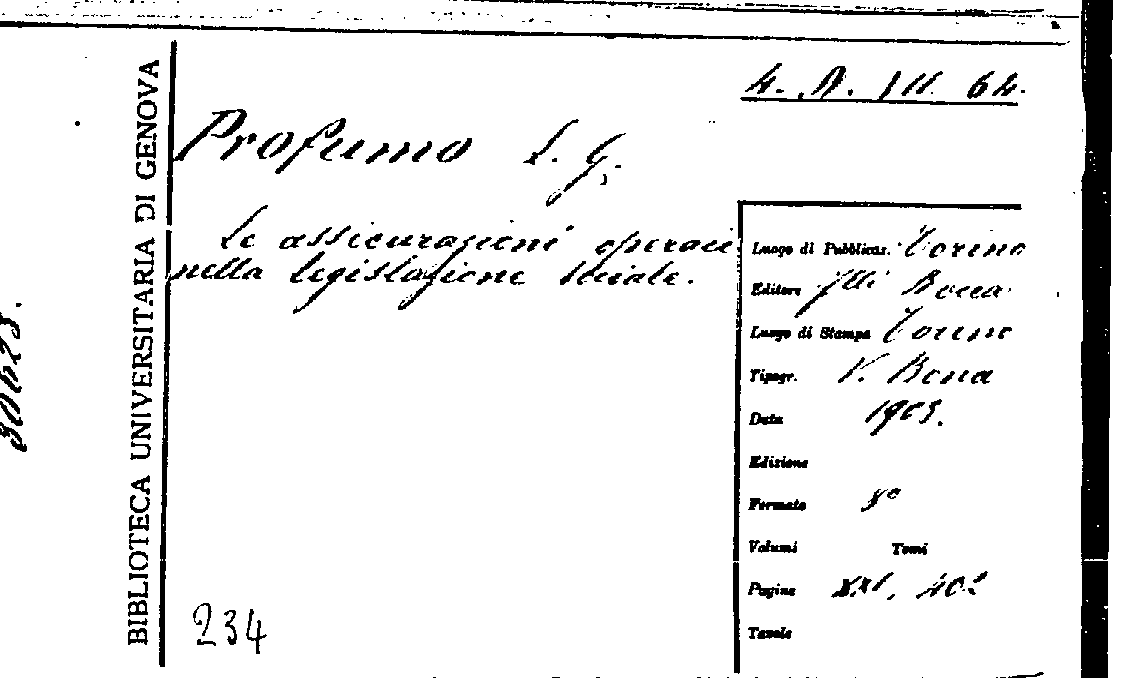 4. A. III. 64.
Profumo L. G.
Le assicurazioni operaie
nella legislazione sociale.
BIBLIOTECA UNIVERSITARIA DI GENOVA
30623.
Luogo di Pubblicaz. Torino
Editore f.lli Bocca
Luogo di Stampa Torino
Tipogr. V. Bona
Data 1903.
Edizione
Formato 8º
Volumi Tomi
Pagine XXI, 402
Tavole
234